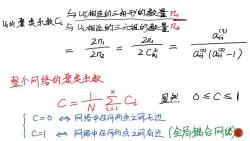 v_i的聚类系数 C_i = 与v_i相连的三角形的数量 n_1 / 与v_i相连的三元组的数量 n_2
= 2n_1 / 2n_2 = 2n_1 / 2C² = a_ii^(3) / a_ii^(2)(a_ii^(2)-1)
整个网络的聚类系数
C = 1/N Σ_{i=1}^N C_i 显然 0≤C≤1
C=0 ⇔ 网络中任何两点之间无边
C=1 ⇔ 网络中任何两点之间有边 (全局耦合网络)